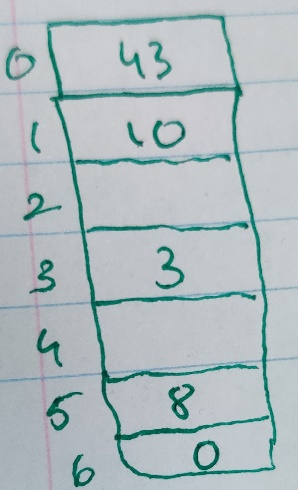 0 43
1 10
2
3 3
4
5 8
6 0